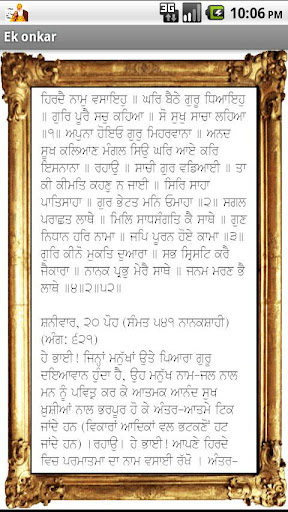 3G
10:06 PM
Ek onkar
ਹਿਰਦੈ ਨਾਮੁ ਵਸਾਇਹੁ ॥ ਘਰਿ ਬੈਠੇ ਗੁਰੂ ਧਿਆਇਹੁ
॥ ਗੁਰਿ ਪੂਰੈ ਸਚੁ ਕਹਿਆ ॥ ਸੋ ਸੁਖੁ ਸਾਚਾ ਲਹਿਆ
॥੧॥ ਅਪੁਨਾ ਹੋਇਓ ਗੁਰੁ ਮਿਹਰਵਾਨਾ ॥ ਅਨਦ
ਸੂਖ ਕਲਿਆਣ ਮੰਗਲ ਸਿਉ ਘਰਿ ਆਏ ਕਰਿ
ਇਸਨਾਨਾ ॥ ਰਹਾਉ ॥ ਸਾਚੀ ਗੁਰ ਵਡਿਆਈ ॥ ਤਾ
ਕੀ ਕੀਮਤਿ ਕਹਣੁ ਨ ਜਾਈ ॥ ਸਿਰਿ ਸਾਹਾ
ਪਾਤਿਸਾਹਾ ॥ ਗੁਰ ਭੇਟਤ ਮਨਿ ਓਮਾਹਾ ॥੨॥ ਸਗਲ
ਪਰਾਛਤ ਲਾਥੇ ॥ ਮਿਲਿ ਸਾਧਸੰਗਤਿ ਕੈ ਸਾਥੇ ॥ ਗੁਣ
ਨਿਧਾਨ ਹਰਿ ਨਾਮਾ ॥ ਜਪਿ ਪੂਰਨ ਹੋਏ ਕਾਮਾ ॥੩॥
ਗੁਰਿ ਕੀਨੋ ਮੁਕਤਿ ਦੁਆਰਾ ॥ ਸਭ ਸ੍ਰਿਸਟਿ ਕਰੈ
ਜੈਕਾਰਾ ॥ ਨਾਨਕ ਪ੍ਰਭੁ ਮੇਰੈ ਸਾਥੇ ॥ ਜਨਮ ਮਰਣ ਭੈ
ਲਾਥੇ ॥੪॥੨॥੫੨॥
ਸ਼ਨੀਵਾਰ, ੨੦ ਪੋਹ (ਸੰਮਤ ੫੪੧ ਨਾਨਕਸ਼ਾਹੀ)
(ਅੰਗ: ੬੨੧)
ਹੇ ਭਾਈ! ਜਿਨ੍ਹਾਂ ਮਨੁੱਖਾਂ ਉਤੇ ਪਿਆਰਾ ਗੁਰੂ
ਦਇਆਵਾਨ ਹੁੰਦਾ ਹੈ, ਉਹ ਮਨੁੱਖ ਨਾਮ-ਜਲ ਨਾਲ
ਮਨ ਨੂੰ ਪਵਿਤ੍ਰ ਕਰ ਕੇ ਆਤਮਕ ਆਨੰਦ ਸੁਖ
ਖ਼ੁਸ਼ੀਆਂ ਨਾਲ ਭਰਪੂਰ ਹੋ ਕੇ ਅੰਤਰ-ਆਤਮੇ ਟਿਕ
ਜਾਂਦੇ ਹਨ (ਵਿਕਾਰਾਂ ਆਦਿਕਾਂ ਵਲ ਭਟਕਣੋਂ ਹਟ
ਜਾਂਦੇ ਹਨ) ।ਰਹਾਉ। ਹੇ ਭਾਈ! ਆਪਣੇ ਹਿਰਦੇ
ਵਿਚ ਪਰਮਾਤਮਾ ਦਾ ਨਾਮ ਵਸਾਈ ਰੱਖੋ । ਅੰਤਰ-